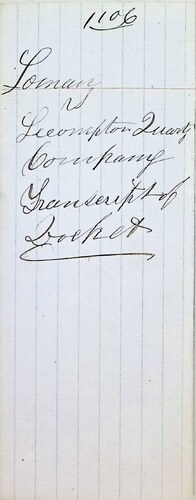 1106
Lomany
vs
Lecompton Quartz
Company
Transcript of
Docket